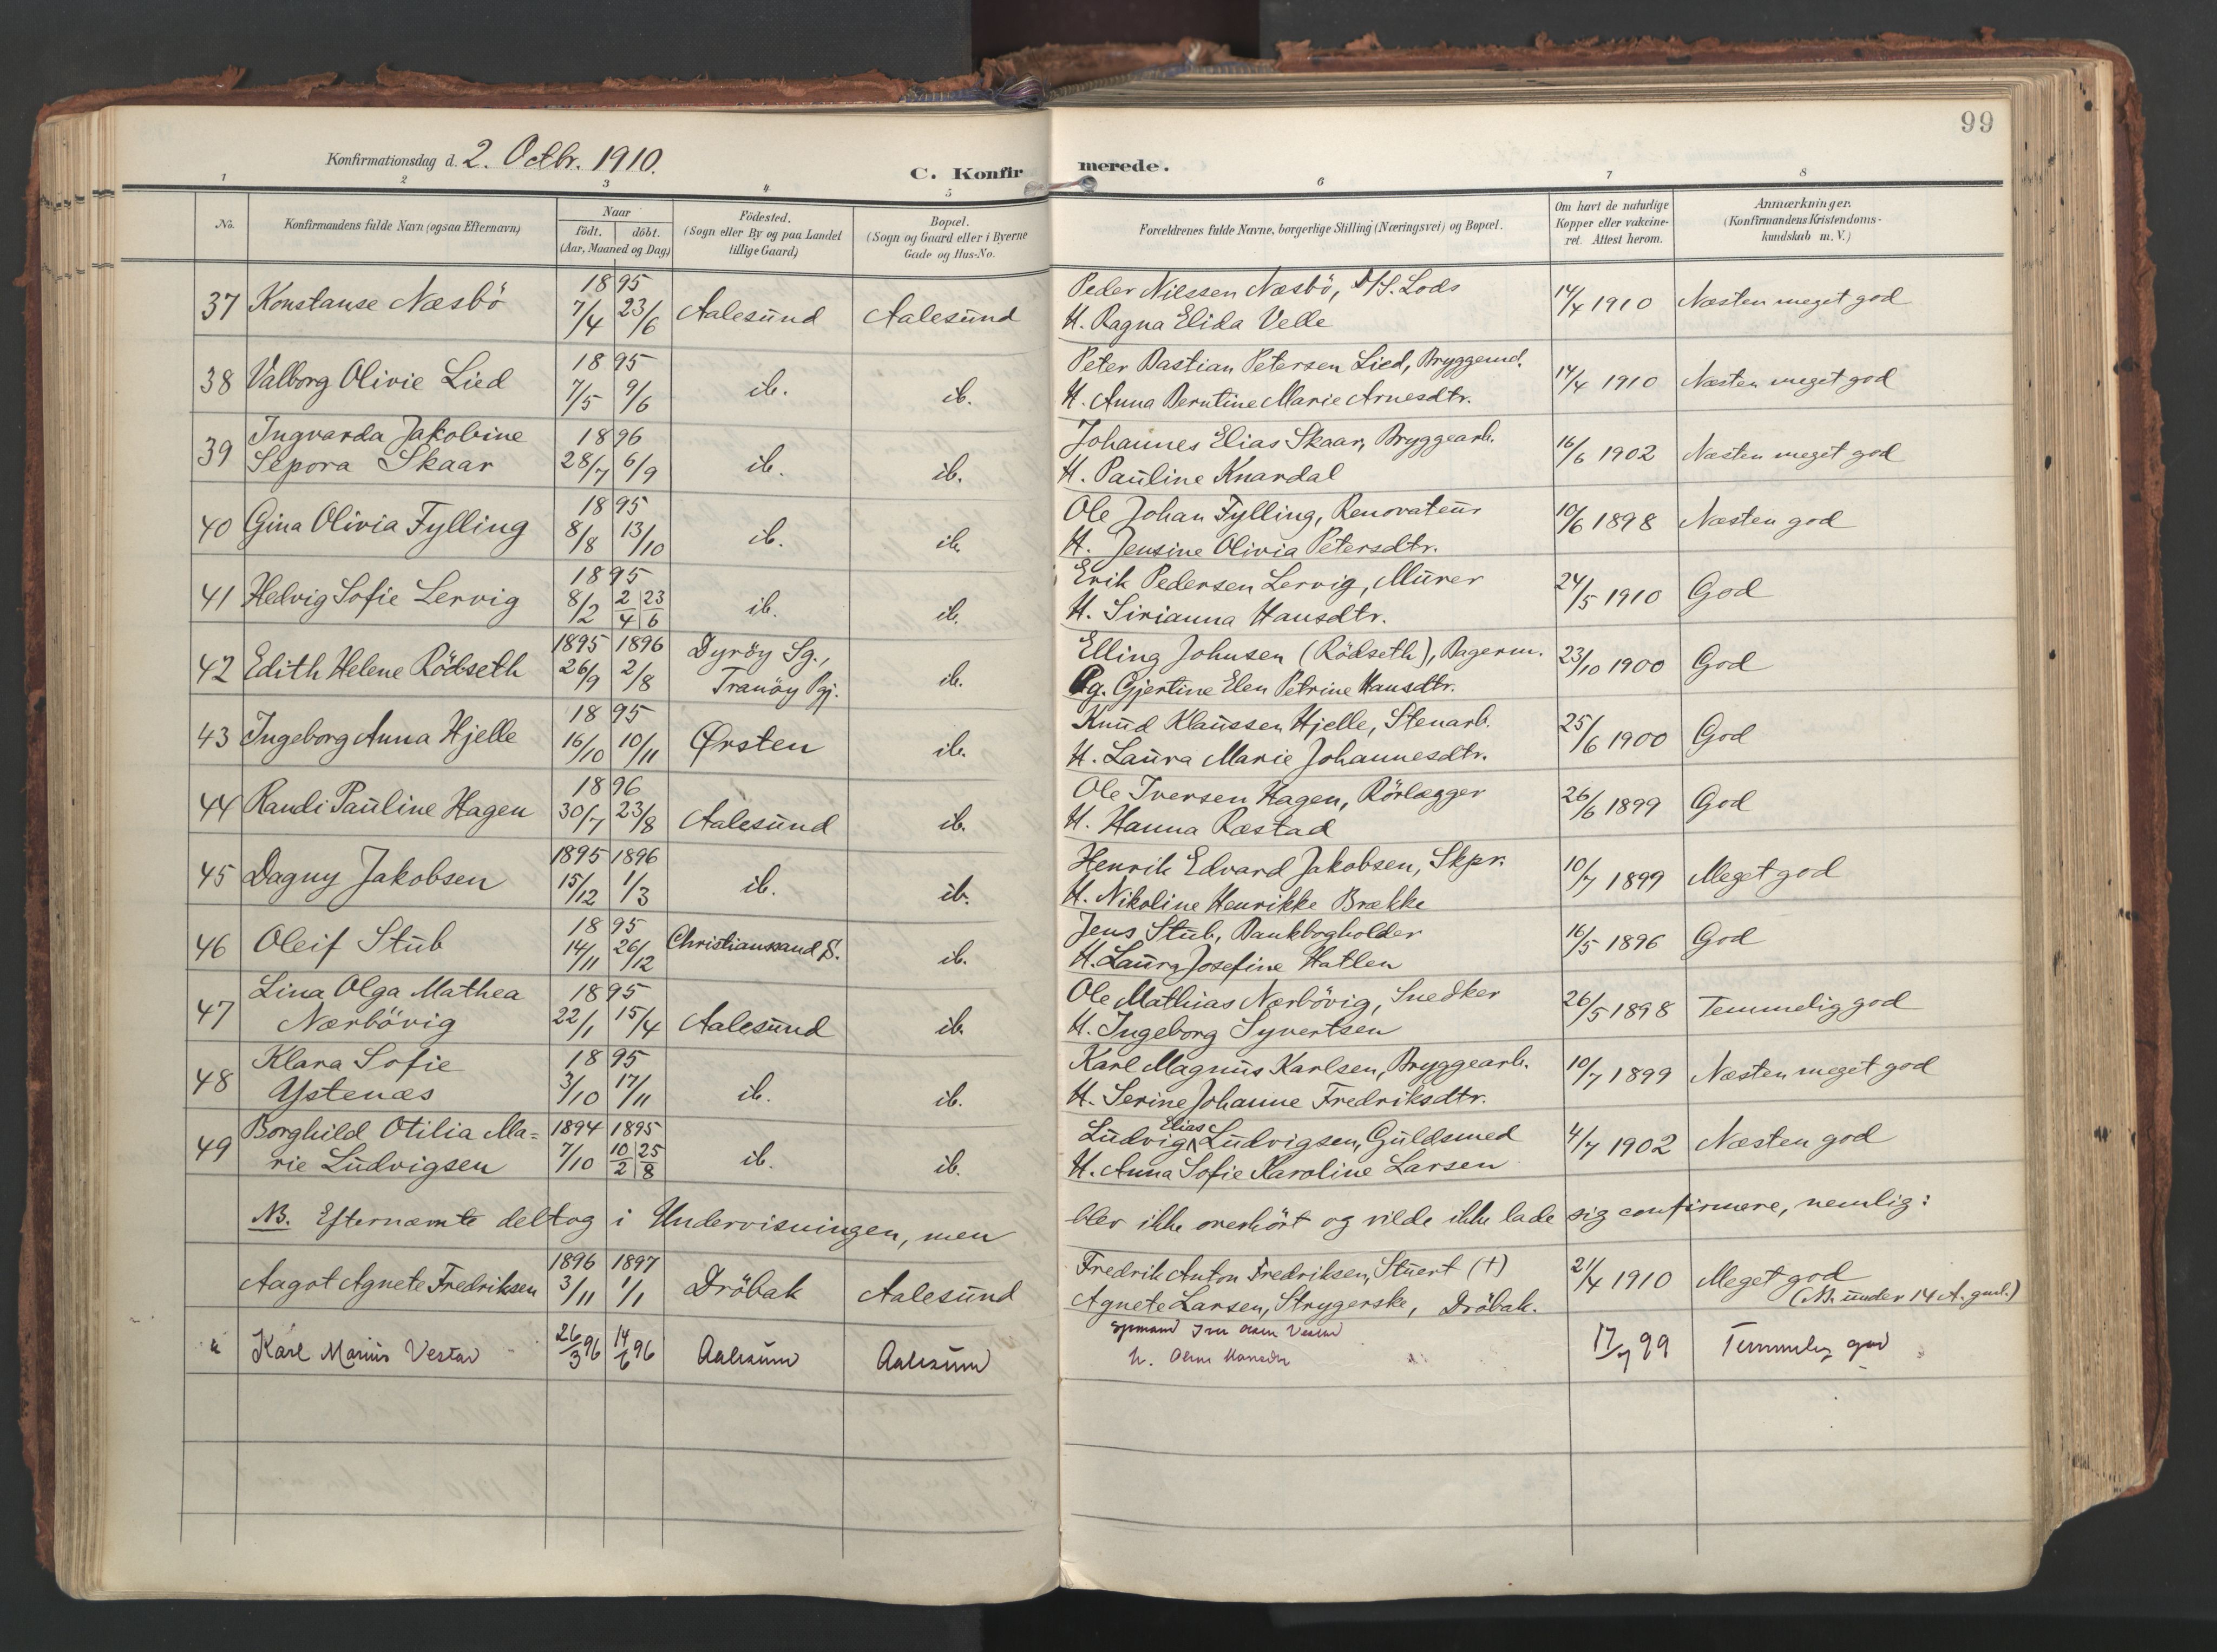 99
Konfirmationsdag d. 2. Octbr. 1910.
C. Konfirmerede.
1 2 3 4 5 6 7 8
No.
Konfirmandens fulde Navn (ogsaa Efternavn)
Naar
født. døbt.
(Aar, Maaned og Dag)
Fødested.
(Sogn eller By og paa Landet
tillige Gaard)
Bopæl.
(Sogn og Gaard eller i Byerne
Gade og Hus-No.
Forældrenes fulde Navne, borgerlige Stilling (Næringsvei) og Bopæl.
Om havt de naturlige
Kopper eller vakcine-
ret. Attest herom.
Anmærkninger.
(Konfirmandens Kristendoms-
kundskab m. V.)
37 Konstanse Næsbö 1895 7/4 23/6 Aalesund Aalesund
Peder Nilssen Næsbö, D/S. Lods
H. Ragna Elida Velle
14/4 1910 Næsten meget god
38 Valborg Olivie Lied 1895 7/5 9/6 ib. ib.
Peter Bastian Petersen Lied, Bryggemd.
H. Anna Berntine Marie Arnesdtr.
14/4 1910 Næsten meget god
39 Ingvarda Jakobine
Sepora Skaar 1896 28/7 6/9 ib. ib.
Johannes Elias Skaar, Bryggearb.
H. Pauline Knardal
16/6 1902 Næsten meget god
40 Gina Olivia Fylling 1895 8/8 13/10 ib. ib.
Ole Johan Fylling, Renovateur
H. Jensine Olivia Petersdtr.
10/6 1898 Næsten god
41 Hedvig Sofie Lervig 1895 8/2 2/4 23/6 ib. ib.
Erik Pedersen Lervig, Murer
H. Sirianna Hansdtr.
24/5 1910 God
42 Edith Helene Rödseth 1895 1896 26/9 2/8 Dyröy Sg.,
Tranöy Pgj. ib.
Elling Johnsen (Rödseth), Bagerm.
Pg. Gjertine Elen Petrine Hansdtr.
23/10 1900 God
43 Ingeborg Anna Hjelle 1895 16/10 10/11 Ørsten ib.
Knud Klaussen Hjelle, Stenarb.
H. Laura Marie Johannesdtr.
25/6 1900 God
44 Randi Pauline Hagen 1896 30/7 23/8 Aalesund ib.
Ole Iversen Hagen, Rörlægger
H. Hanna Ræstad
26/6 1899 God
45 Dagny Jakobsen 1895 1896 15/12 1/3 ib. ib.
Henrik Edvard Jakobsen, Skpr.
H. Nikoline Henrikke Brække
10/7 1899 Meget god
46 Oleif Stub 1895 14/11 26/12 Christianssand S. ib.
Jens Stub, Bankbogholder
H. Laura Josefine Hatlen
16/5 1896 God
47 Lina Olga Mathea
Nærbövig 1895 22/1 15/4 Aalesund ib.
Ole Mathias Nærbövig, Snedker
H. Ingeborg Syvertsen
26/5 1898 Temmelig god
48 Klara Sofie
Ystenæs 1895 3/10 17/11 ib. ib.
Karl Magnus Karlsen, Bryggearb.
H. Serine Johanne Fredriksdtr.
10/7 1899 Næsten meget god
49 Borghild Otilia Ma=
rie Ludvigsen 1894 1895 7/10 10/2 25/8 ib. ib.
Ludvig Elias Ludvigsen, Guldsmed
H. Anna Sofie Karoline Larsen
4/7 1902 Næsten god
NB. Efternævnte deltog i Undervisningen, men blev ikke overhört og vilde ikke lade sig confirmere, nemlig:
Aagot Agnete Fredriksen 1896 1897 3/11 1/1 Dröbak Aalesund
Fredrik Anton Fredriksen, Stuert (†)
Agnete Larsen, Strygerske, Dröbak.
21/4 1910 Meget god
(NB. under 14 A. gml.)
Karl Marius Vestad 26/3 96 14/6 96 Aalesund Aalesund
Olsen Vestad
H.
17/7 99 Temmelig god